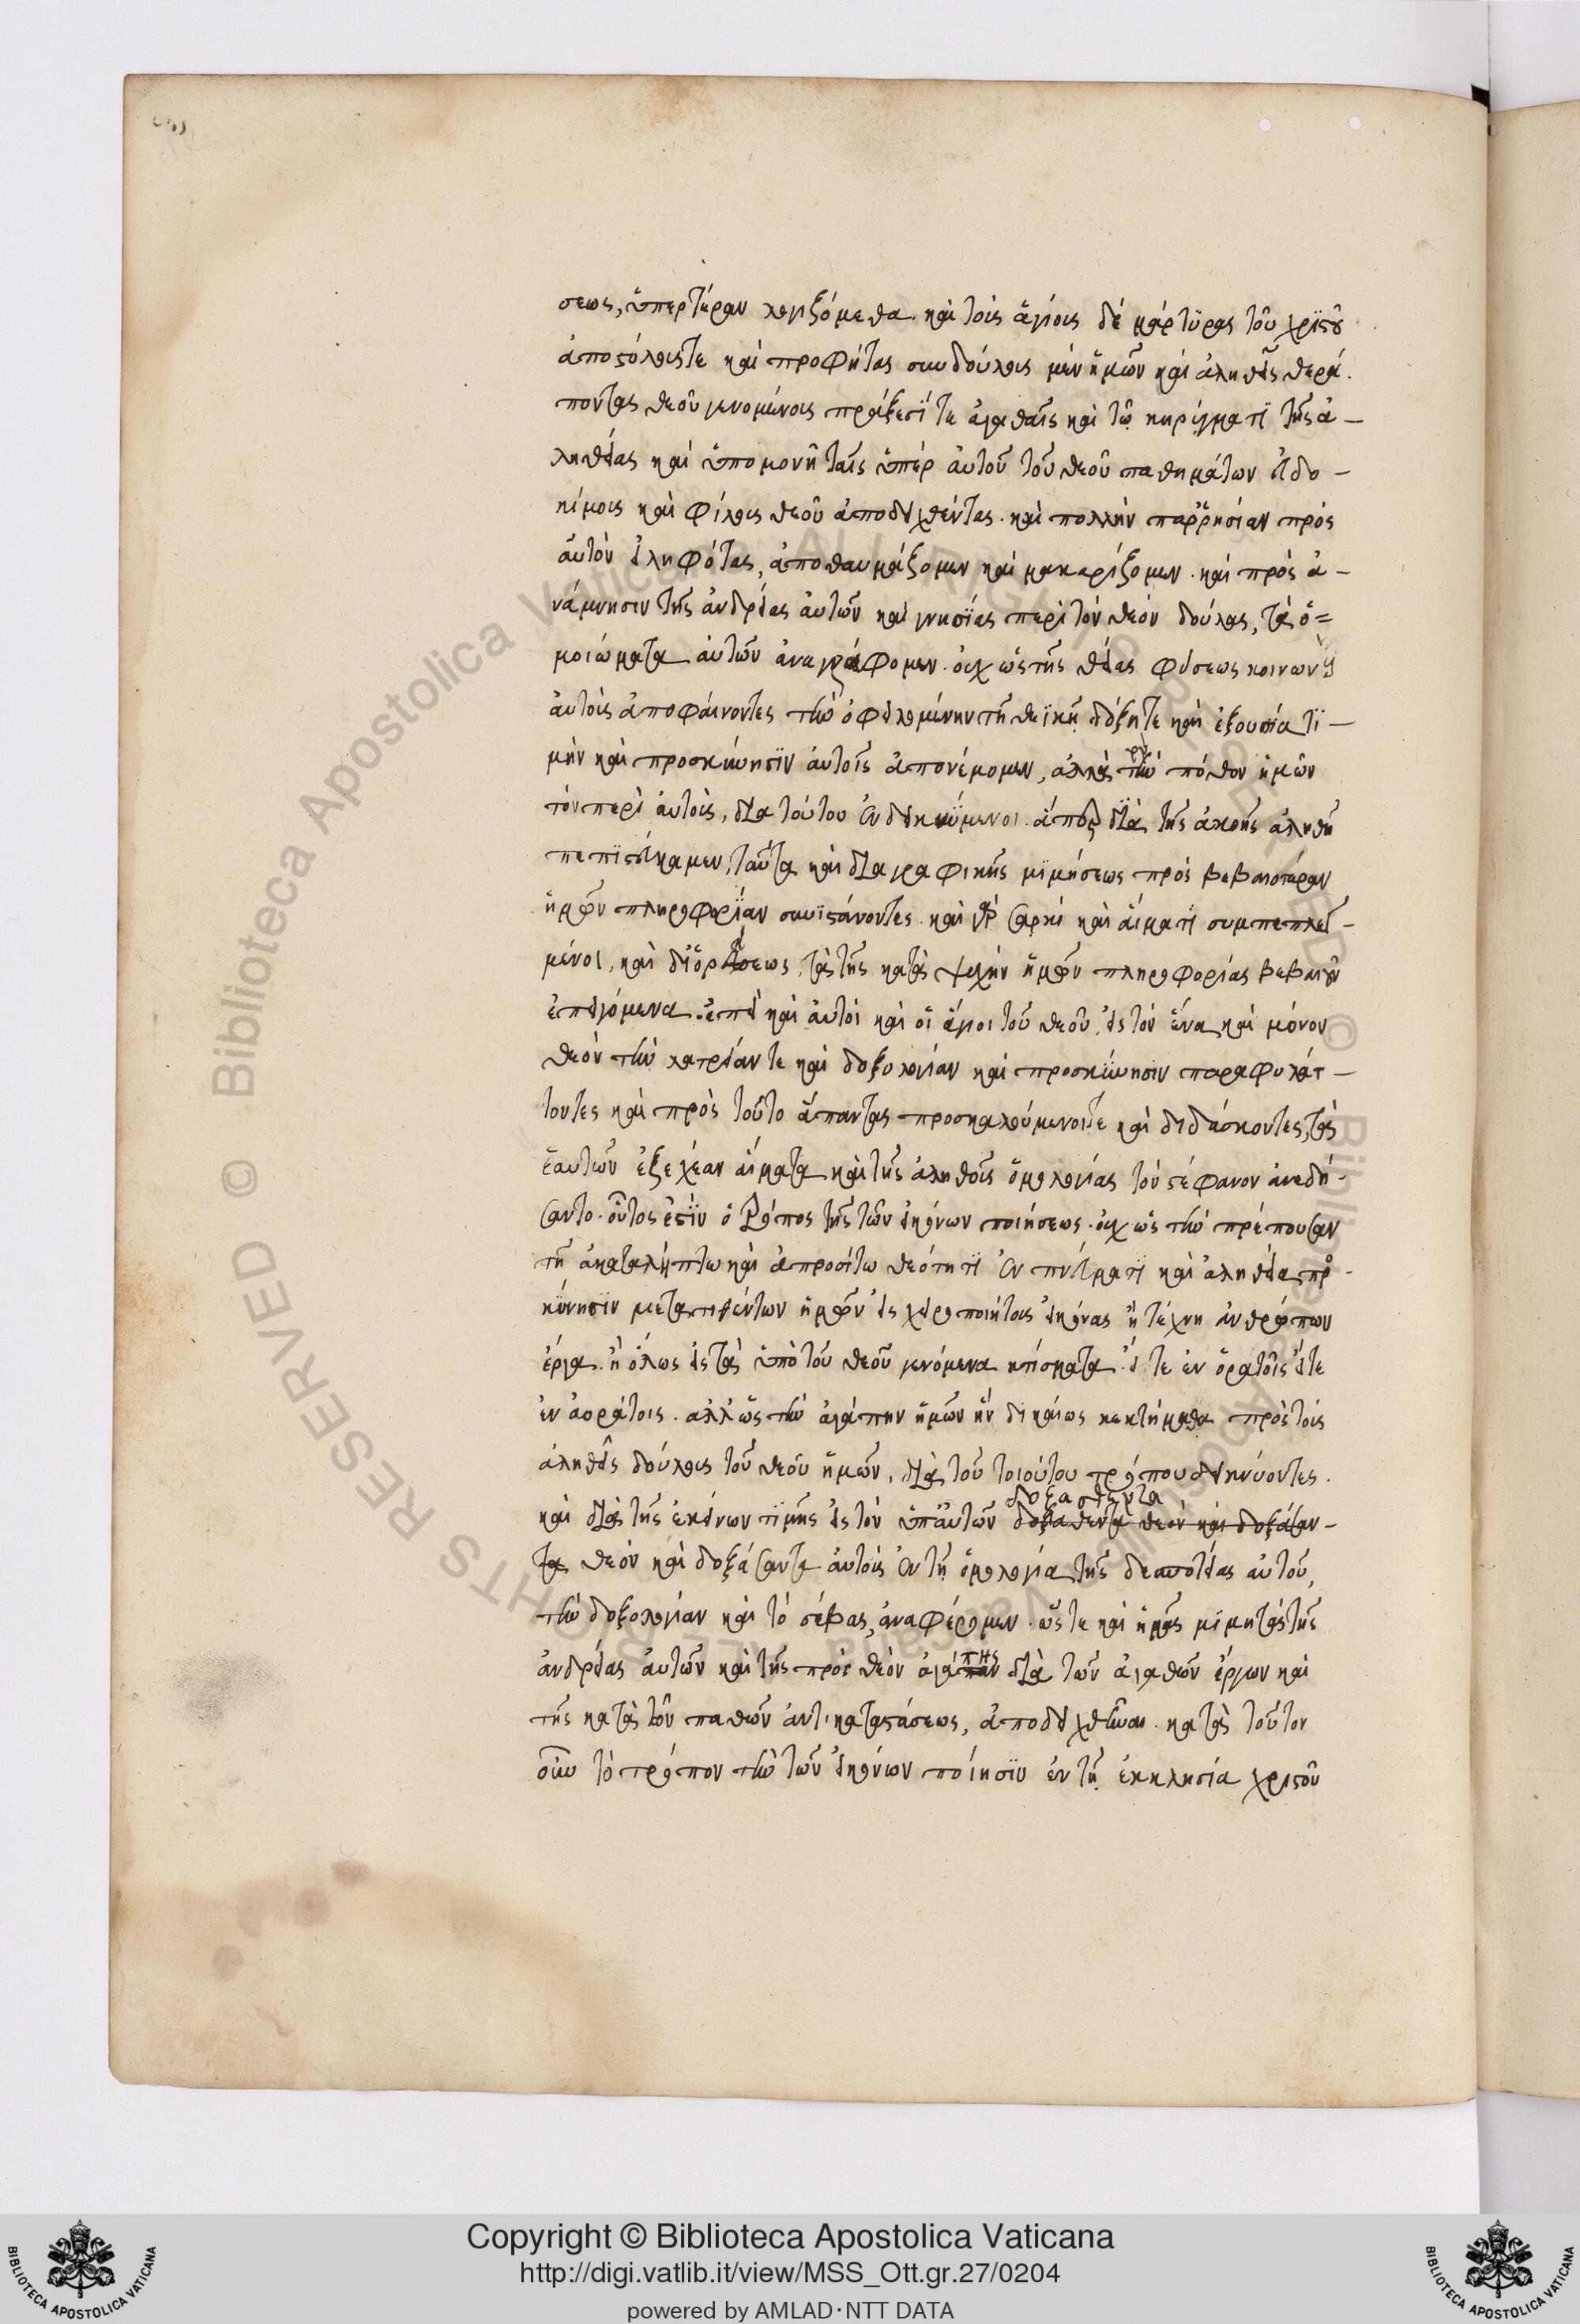 σεως, ὑπερτέραν λογιζόμεθα. καὶ τοὺς ἁγίους δὲ μάρτϋρας τοῦ χρϊστοῦ
ἀποστόλους τε καὶ προφήτας συνδούλους μὲν ἡμῶν καὶ ἀληθεῖς θερά.
ποντας θεοῦ γενομένους πράξεσί τε ἀγαθαῖς καὶ τῶ κηρύγματϊ τῆς ἀ-
ληθείας καὶ ὑπομονῆ ταῖς ὑπὲρ αὐτοῦ τοῦ θεοῦ παθημάτων εὐδο-
κίμους καὶ φίλους θεοῦ ἀποδειχθέντας. καὶ πολλὴν παρρησίαν πρὸς
αὐτὸν εἰληφότας, ἀποθαυμάζομεν καὶ μακαρίζομεν. καὶ πρὸς ἀ-
νάμνησιν τῆς ἀνδρείας αὐτῶν καὶ γνησίας περὶ τὸν θεὸν δούλας, τὰ ὁ=
μοιώματα αὐτῶν ἀναγράφομεν. οὐχ ὡς τῆς θείας φύσεως κοινωνοὺς
αὐτοὺς ἀποφαίνοντες τὴν ὀφειλομένην τῆ θεϊκῆ δόξη τε καὶ ἐξουσία τϊ-
μὴν καὶ προσκύνησϊν αὐτοῖς ἀπονέμομεν, ἀλλὰ τὸν πόθον ἡμῶν
τὸν περὶ αὐτοὺς, διὰ τούτου ἐνδεικνύμενοι. ἅπερ διὰ τῆς ἀκοῆς ἀληθῆ
πεπϊστεύκαμεν, ταῦτα καὶ διὰ γραφικῆς μϊμήσεως πρὸς βεβαιοτέραν
ἡμῶν πληροφορίαν συνϊστάνοντες. καὶ γὰρ σαρκὶ καὶ αἵματϊ συμπεπλεγ-
μένοι, καὶ δι' ὁράσεως, τὰ τῆς κατὰ ψυχὴν ἡμῶν πληροφορίας βεβαιοῦν
ἐπειγόμενα. ἐπεὶ καὶ αὐτοὶ καὶ οἱ ἅγιοι τοῦ θεοῦ, εἰς τὸν ἕνα καὶ μόνον
θεὸν τὴν λατρείαν τε καὶ δοξολογίαν καὶ προσκύνησιν παραφυλάτ-
τοντες καὶ πρὸς τοῦτο ἅπαντας προσκαλούμενοί τε καὶ διδάσκοντες, τὰ
ἑαυτῶν ἐξέχεαν αἵματα καὶ τῆς ἀληθοῦς ὁμολογίας τὸν στέφανον ἀνεδή-
σαντο. οὗτος ἐστϊν ὁ τρόπος τῆς τῶν εἰκόνων ποιήσεως. οὐχ ὡς τὴν πρέπουσαν
τῆ ἀκαταλήπτω καὶ ἀπροσίτω θεότητϊ ἐν πνεύματϊ καὶ ἀληθεία προσ-
κύνησϊν μετατιθέντων ἡμῶν εἰς χειροποιήτους εἰκόνας ἢ τέχνη ἀνθρώπων
ἔργα. ἢ ὅλως εἰς τὰ ὑπὸ τοῦ θεοῦ γενόμενα κτίσματα. εἴ τε ἐν ὁρατοῖς εἴτε
ἐν ἀοράτοις. ἀλλ' ὡς τὴν ἀγάπην ἡμῶν ἣν δικαίως κεκτήμεθα πρὸς τοὺς
ἀληθεῖς δούλους τοῦ θεοῦ ἡμῶν, διὰ τοῦ τοιούτου τρόπου δεικνύοντες.
δοξασθέντα
καὶ διὰ τῆς ἐκείνων τϊμῆς εἰς τὸν ὑπ' αὐτῶν δοξαθέντα θεὸν καὶ δοξάσαν-
τα θεὸν καὶ δοξάσαντα αὐτοὺς ἐν τῆ ὁμολογία τῆς δεσποτείας αὐτοῦ,
τὴν δοξολογίαν καὶ τὸ σέβας, ἀναφέρομεν. ὥστε καὶ ἡμᾶς μϊμητὰς τῆς
ἀνδρείας αὐτῶν καὶ τῆς πρὸς θεὸν ἀγάπης διὰ τῶν ἀγαθῶν ἔργων καὶ
τῆς κατὰ τῶν παθῶν ἀντικαταστάσεως, ἀποδειχθῆναι. κατὰ τοῦτον
οὖν τὸ τρόπον τὴν τῶν εἰκόνων ποίησϊν ἐν τῆ ἐκκλησία χριστοῦ
Copyright © Biblioteca Apostolica Vaticana
http://digi.vatlib.it/view/MSS_Ott.gr.27/0204
powered by AMLAD·NTT DATA